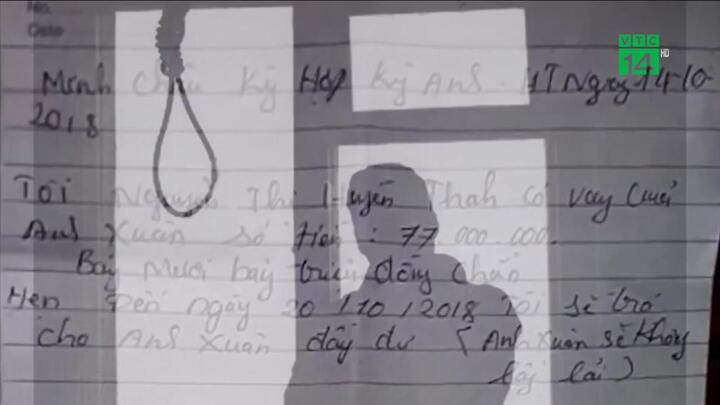 No.
Date
VTC
14 HD
Minh Châu Kỳ Hợp Kỳ Anh - HT Ngày 14-10
2018
Tôi Nguyễn Thị Huyền Thah có vay của
Anh Xuân số tiền : 77.000.000.
Bảy mươi bảy triệu đồng chẵn
Hẹn Đến ngày 20/10/2018 Tôi sẽ trả
cho Anh Xuân đầy đủ (Anh Xuân sẽ không
lấy lãi)